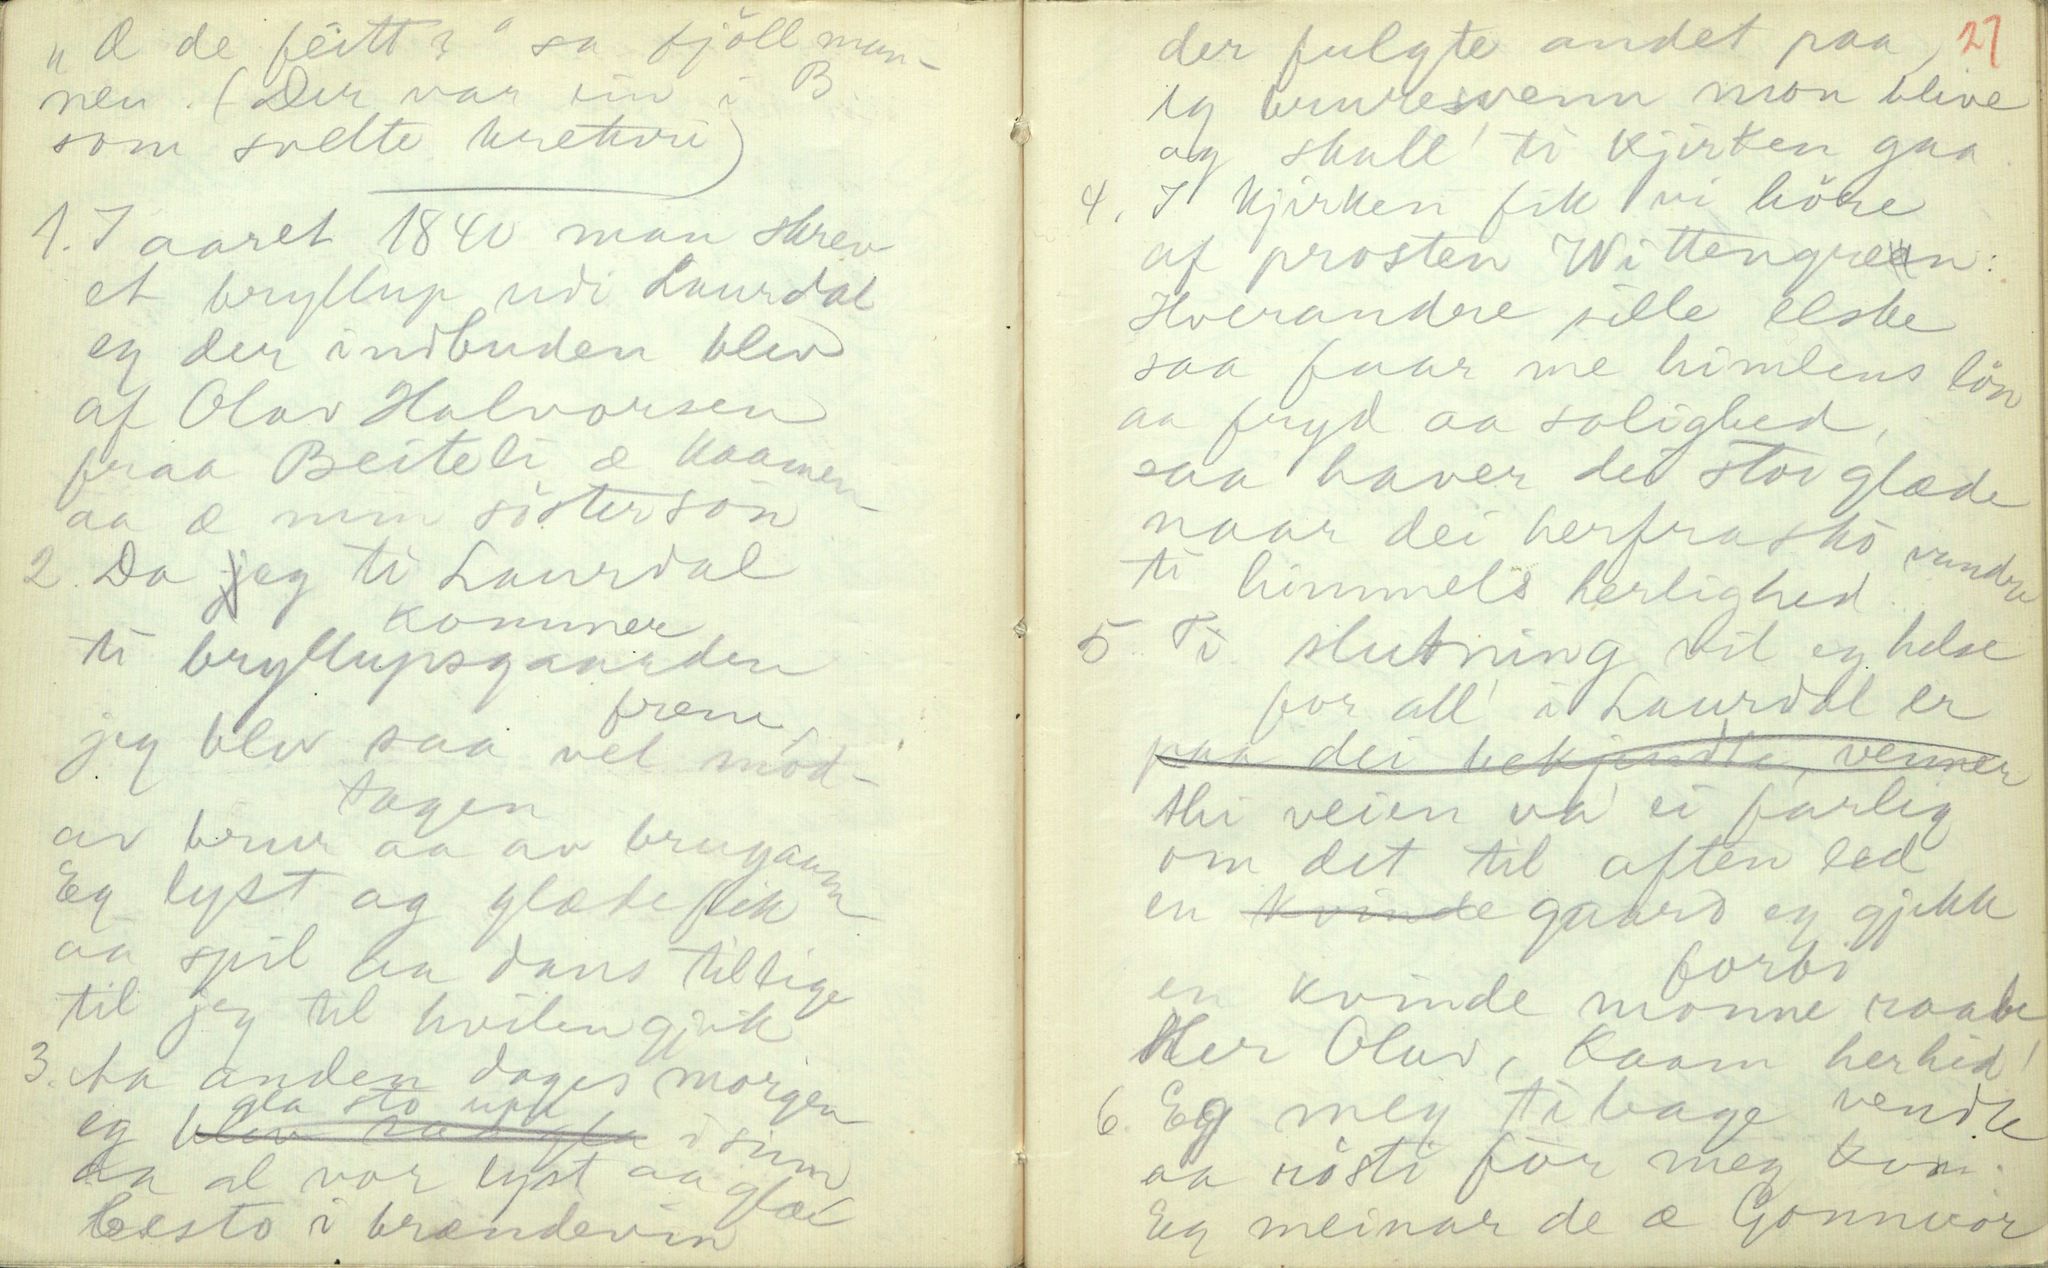 „Æ de feitt?" sa fjöllman-
nen. (Der var ein i B.
som svelte
1. I aaret 1840 man skrev
et bryllup udi Laurdal
eg der indbuden blev
af Olav Halvorsen
fraa Beiteli æ kaamen
aa æ min sösterson
2. Da jeg ti Laurdal
kommer
ti bryllupsgaarden
frem,
jeg blev saa vel mod-
tagen
av brur aa av brugaam
Eg lyst og glæde fik
aa spil aa dans tillige
til jeg til hvilen gjik
3. Aa anden dages morgen
gla sto upp
eg blev saa gla i sinn
da al vor lyst aa glæ
besto i brændevin
27
der fulgte andet paa
eg bruresvenn mon blive
og skull' ti kjirken gaa.
4. I kjirken fik vi höre
af prosten Wittengreen:
Hverandre sille elske
saa faar me himlens lön
aa fryd aa salighed,
saa haver dei stor glæde
naar dei herfra sko vandra
ti himmels herlighed.
5. Ti slutning vil eg helse
for all' i Laurdal er
paa dei bekjendte, venner
thi veien va' ei farlig
om det til aften led
en kvinde gaard eg gjekk
forbi
en kvinde monne raabe
Her Olav, kaam herhid!
6. Eg meg tibage vendte
aa rösti for meg kom.
Eg meinar de æ Gonnvor